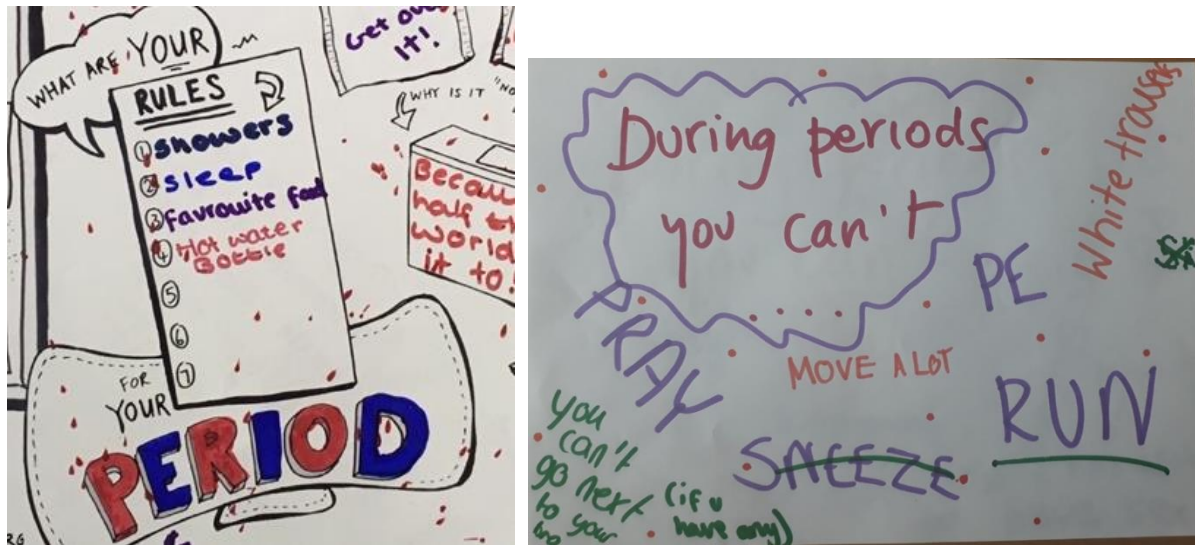 WHAT ARE YOUR
RULES
① showers
② sleep
③ favrouite food
④ Hot water
Bottle
⑤
⑥
⑦
FOR
YOUR
PERIOD
Get over
it!
WHY IS IT
"NO
Becau
half th
world
it to!
RG
During periods
you can't
....
White trausers
PE
PRAY
MOVE A LOT
RUN
SNEEZE
you
can't
go next
to your
(if u
have any)